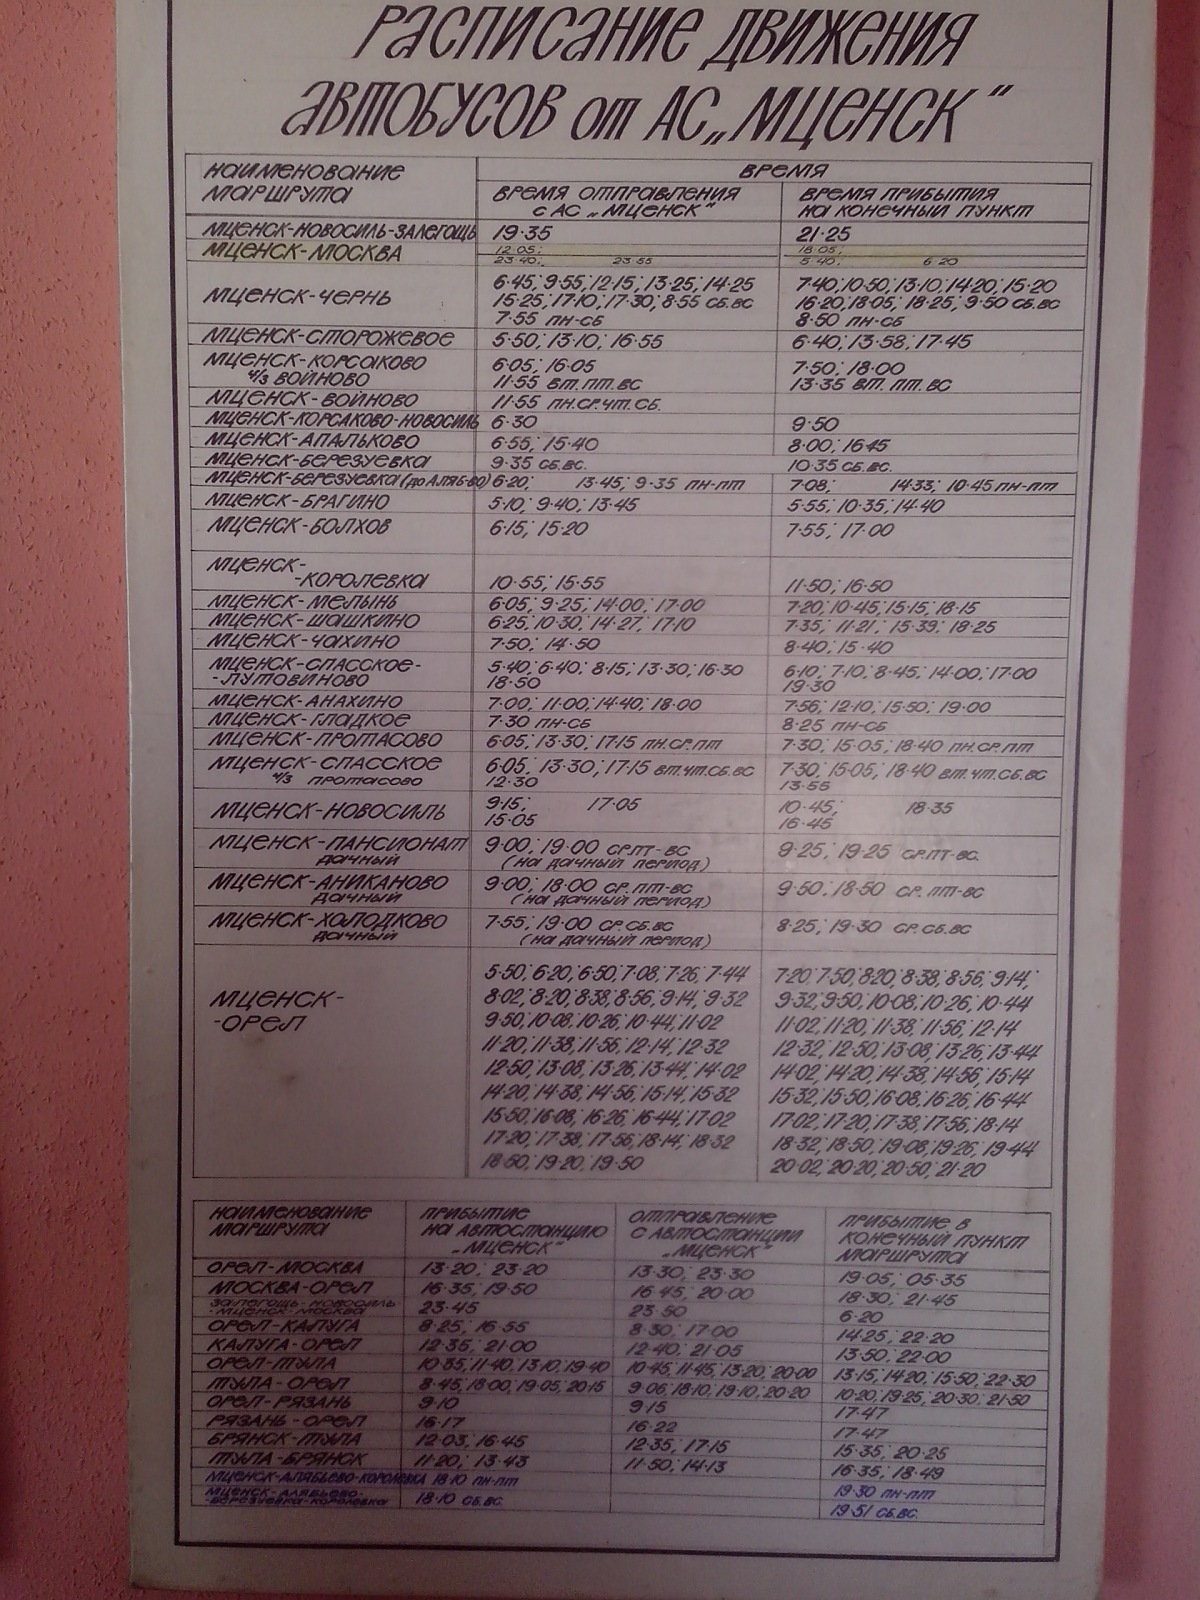 РАСПИСАНИЕ ДВИЖЕНИЯ
АВТОБУСОВ от АС „МЦЕНСК"
НАИМЕНОВАНИЕ МАРШРУТА ВРЕМЯ
ВРЕМЯ ОТПРАВЛЕНИЯ с АС „МЦЕНСК" ВРЕМЯ ПРИБЫТИЯ НА КОНЕЧНЫЙ ПУНКТ
МЦЕНСК-НОВОСИЛЬ-ЗАЛЕГОЩЬ 19·35 21·25
МЦЕНСК-МОСКВА 12·05; 18·05;
23·40; 23·55 5·40; 6·20
МЦЕНСК-ЧЕРНЬ 6·45; 9·55; 12·15; 13·25; 14·25 7·40; 10·50; 13·10; 14·20; 15·20
15·25; 17·10; 17·30; 8·55 СБ.ВС 16·20; 18·05; 18·25; 9·50 СБ.ВС
7·55 ПН-СБ 8·50 ПН-СБ
МЦЕНСК-СТОРОЖЕВОЕ 5·50; 13·10; 16·55 6·40; 13·58; 17·45
МЦЕНСК-КОРСАКОВО 6·05; 16·05 7·50; 18·00
ч/з ВОЙНОВО 11·55 ВТ.ПТ.ВС 13·35 ВТ.ПТ.ВС
МЦЕНСК-ВОЙНОВО 11·55 ПН.СР.ЧТ.СБ.
МЦЕНСК-КОРСАКОВО-НОВОСИЛЬ 6·30 9·50
МЦЕНСК-АПАЛЬКОВО 6·55; 15·40 8·00; 16·45
МЦЕНСК-БЕРЕЗУЕВКА 9·35 СБ.ВС. 10·35 СБ.ВС.
МЦЕНСК-БЕРЕЗУЕВКА (до АЛЯБ-ВО) 6·20; 13·45; 9·35 ПН-ПТ 7·08; 14·33; 10·45 ПН-ПТ
МЦЕНСК-БРАГИНО 5·10; 9·40; 13·45 5·55; 10·35; 14·40
МЦЕНСК-БОЛХОВ 6·15; 15·20 7·55; 17·00
МЦЕНСК-
-КОРОЛЕВКА 10·55; 15·55 11·50; 16·50
МЦЕНСК-МЕЛЫНЬ 6·05; 9·25; 14·00; 17·00 7·20; 10·45; 15·15; 18·15
МЦЕНСК-ШАШКИНО 6·25; 10·30; 14·27; 17·10 7·35; 11·21; 15·39; 18·25
МЦЕНСК-ЧАХИНО 7·50; 14·50 8·40; 15·40
МЦЕНСК-СПАССКОЕ- 5·40; 6·40; 8·15; 13·30; 16·30 6·10; 7·10; 8·45; 14·00; 17·00
-ЛУТОВИНОВО 18·50 19·30
МЦЕНСК-АНАХИНО 7·00; 11·00; 14·40; 18·00 7·56; 12·10; 15·50; 19·00
МЦЕНСК-ГЛАДКОЕ 7·30 ПН-СБ 8·25 ПН-СБ
МЦЕНСК-ПРОТАСОВО 6·05; 13·30; 17·15 ПН.СР.ПТ 7·30; 15·05; 18·40 ПН.СР.ПТ
МЦЕНСК-СПАССКОЕ 6·05; 13·30; 17·15 ВТ.ЧТ.СБ.ВС 7·30; 15·05; 18·40 ВТ.ЧТ.СБ.ВС
ч/з ПРОТАСОВО 12·30 13·55
МЦЕНСК-НОВОСИЛЬ 9·15; 17·05 10·45; 18·35
15·05 16·45
МЦЕНСК-ПАНСИОНАТ 9·00; 19·00 СР.ПТ-ВС 9·25; 19·25 СР.ПТ-ВС.
дачный (на дачный период)
МЦЕНСК-АНИКАНОВО 9·00; 18·00 СР.ПТ-ВС 9·50; 18·50 СР.ПТ-ВС
дачный (на дачный период)
МЦЕНСК-ХОЛОДКОВО 7·55; 19·00 СР.СБ.ВС 8·25; 19·30 СР.СБ.ВС
дачный (на дачный период)
МЦЕНСК-
-ОРЕЛ
5·50; 6·20; 6·50; 7·08; 7·26; 7·44 7·20; 7·50; 8·20; 8·38; 8·56; 9·14;
8·02; 8·20; 8·38; 8·56; 9·14; 9·32 9·32; 9·50; 10·08; 10·26; 10·44
9·50; 10·08; 10·26; 10·44; 11·02 11·02; 11·20; 11·38; 11·56; 12·14
11·20; 11·38; 11·56; 12·14; 12·32 12·32; 12·50; 13·08; 13·26; 13·44
12·50; 13·08; 13·26; 13·44; 14·02 14·02; 14·20; 14·38; 14·56; 15·14
14·20; 14·38; 14·56; 15·14; 15·32 15·32; 15·50; 16·08; 16·26; 16·44
15·50; 16·08; 16·26; 16·44; 17·02 17·02; 17·20; 17·38; 17·56; 18·14
17·20; 17·38; 17·56; 18·14; 18·32 18·32; 18·50; 19·08; 19·26; 19·44
18·50; 19·20; 19·50 20·02; 20·20; 20·50; 21·20
НАИМЕНОВАНИЕ МАРШРУТА ПРИБЫТИЕ НА АВТОСТАНЦИЮ „МЦЕНСК" ОТПРАВЛЕНИЕ С АВТОСТАНЦИИ „МЦЕНСК" ПРИБЫТИЕ В КОНЕЧНЫЙ ПУНКТ МАРШРУТА
ОРЕЛ-МОСКВА 13·20; 23·20 13·30; 23·30 19·05; 05·35
МОСКВА-ОРЕЛ 16·35; 19·50 16·45; 20·00 18·30; 21·45
ЗАЛЕГОЩЬ-НОВОСИЛЬ
-МЦЕНСК-МОСКВА 23·45 23·50 6·20
ОРЕЛ-КАЛУГА 8·25; 16·55 8·30; 17·00 14·25; 22·20
КАЛУГА-ОРЕЛ 12·35; 21·00 12·40; 21·05 13·50; 22·00
ОРЕЛ-ТУЛА 10·35; 11·40; 13·10; 19·40 10·45; 11·45; 13·20; 20·00 13·15; 14·20; 15·50; 22·30
ТУЛА-ОРЕЛ 8·45; 18·00; 19·05; 20·15 9·06; 18·10; 19·10; 20·20 10·20; 19·25; 20·30; 21·50
ОРЕЛ-РЯЗАНЬ 9·10 9·15 17·47
РЯЗАНЬ-ОРЕЛ 16·17 16·22 17·47
БРЯНСК-ТУЛА 12·03; 16·45 12·35; 17·15 15·35; 20·25
ТУЛА-БРЯНСК 11·20; 13·43 11·50; 14·13 16·35; 18·49
МЦЕНСК-АЛЯБЬЕВО-КОРОЛЕВКА 18·10 ПН-ПТ 19·30 ПН-ПТ
МЦЕНСК-АЛЯБЬЕВО-
-БЕРЕЗУЕВКА-КОРОЛЕВКА 18·10 СБ.ВС. 19·51 СБ.ВС.